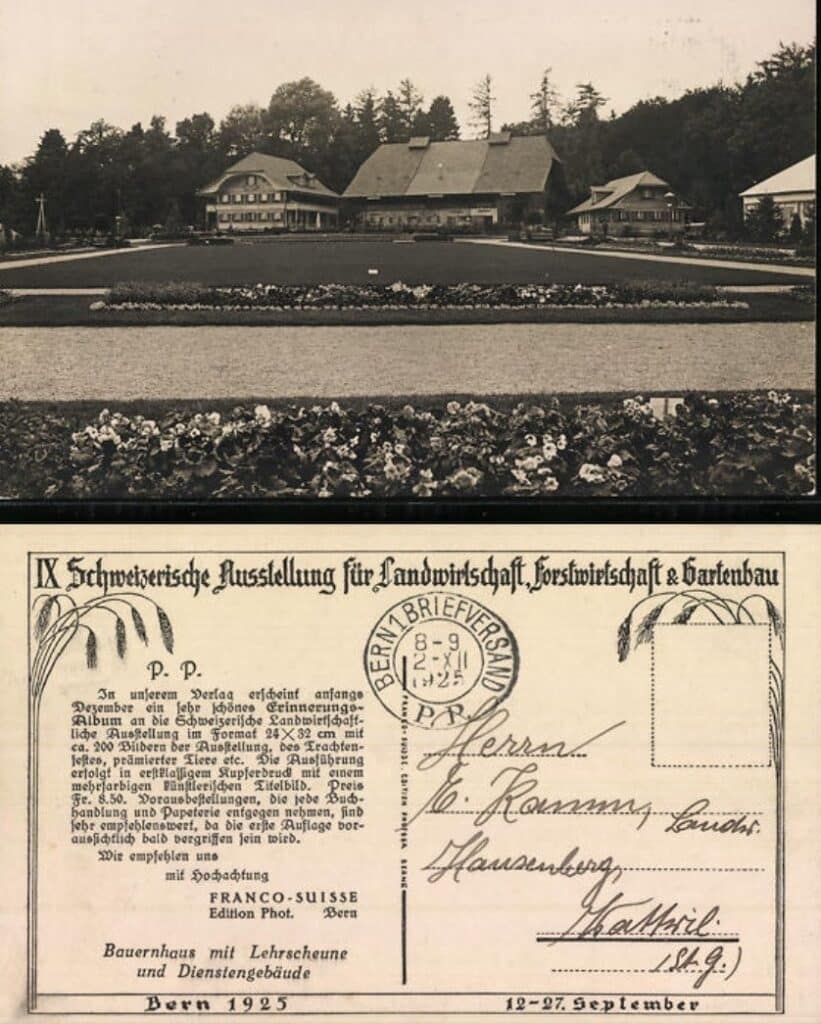 IX Schweizerische Ausstellung für Landwirtschaft, Forstwirtschaft & Gartenbau
P. P.
In unserem Verlag erscheint anfangs
Dezember ein sehr schönes Erinnerungs-
Album an die Schweizerische Landwirtschaft-
liche Ausstellung im Format 24×32 cm mit
ca. 200 Bildern der Ausstellung, des Trachten-
festes, prämierter Tiere etc. Die Ausführung
erfolgt in erstklassigem Kupferdruck mit einem
mehrfarbigen künstlerischen Titelbild. Preis
Fr. 8.50. Vorausbestellungen, die jede Buch-
handlung und Papeterie entgegen nehmen, sind
sehr empfehlenswert, da die erste Auflage vor-
aussichtlich bald vergriffen sein wird.
Wir empfehlen uns
mit Hochachtung
FRANCO-SUISSE
Edition Phot. Bern
Bauernhaus mit Lehrscheune
und Dienstengebäude
BERN 1 BRIEFVERSAND
8-9
2-XII
1925
P.P.
Herrn
E. Kamm, Landw.
Hausenberg,
Kattwil.
(St. G.)
Bern 1925
12-27. September